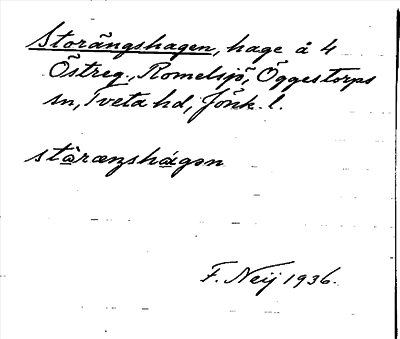 Storängshagen, hage å 4
Östreg., Romelsjö, Öggestorps
sn, Tveta hd, Jönk. l.
stårænshágən
F. Neij 1936.